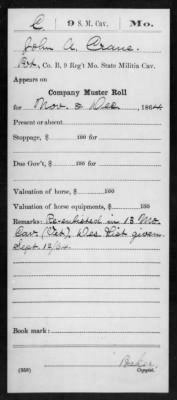 C | 9 S. M. Cav. | Mo.
John A. Crane.
Pvt., Co. B, 9 Reg't Mo. State Militia Cav.
Appears on
Company Muster Roll
for Nov. & Dec, 1864
Present or absent
Stoppage, $ 100 for
Due Gov't, $ 100 for
Valuation of horse, $ 100
Valuation of horse equipments, $ 100
Remarks: Re-enlisted in 13 Mo.
Cav. (Vet), Des List given
Sept. 12/64.
Book mark:
(358)
Copyist.